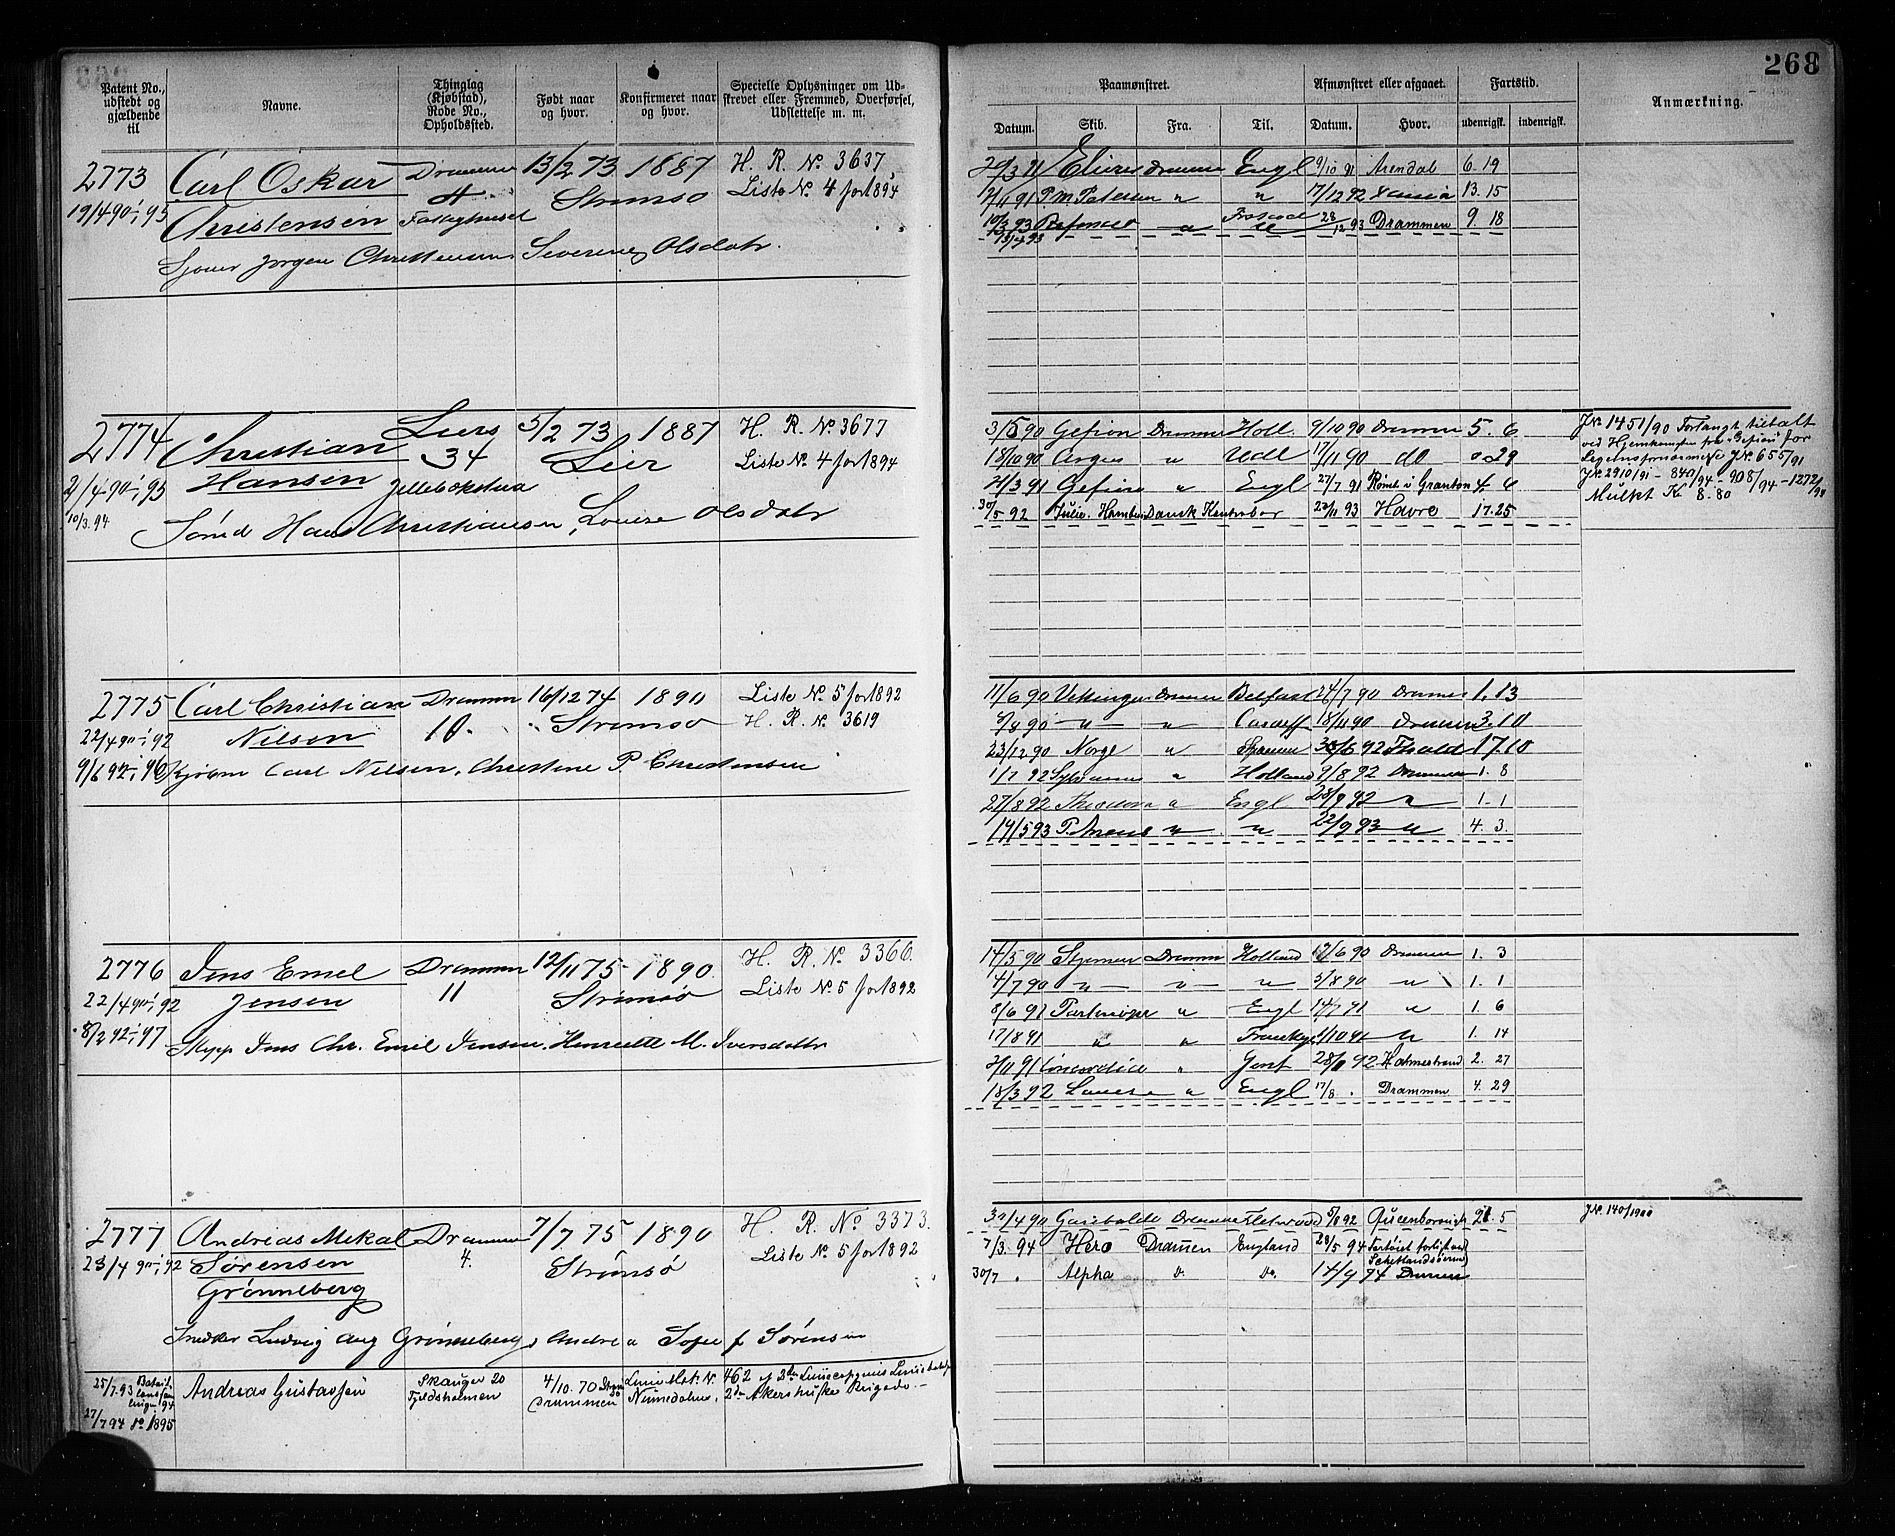 268
Patent No., udstedt og gjældende til
Navne.
Thinglag (Kjøbstad), Rode No., Opholdssted.
Født naar og hvor.
Konfirmeret naar og hvor.
Specielle Oplysninger om Udskrevet eller Fremmed, Overførsel, Udslettelse m. m.
Paamønstret.
Afmønstret eller afgaaet.
Fartstid.
Anmærkning.
Datum. Skib. Fra. Til. Datum. Hvor. udenrigsk. indenrigsk.
2773 Carl Oskar Drammen 13/2 73 1887 H. R. No 3637
19/4 90 - i, 95 Christensen Strømsø Liste No 4 for 1894
Jørgen Christensen, Severine Olsdatr.
Drammen Engl 9/10 91 Arendal 6. 19
12/11 91 P. M. Petersen " " 17/12 92 13. 15
10/3 93 " 28/12 93 Drammen 9. 18
2774 Christian Liers 5/2 73 1887 H. R. No 3677
2/4 90 - i, 95 Hansen 34 Lier Liste No 4 for 1894
10/3. 94 Christiansen, Lovise Olsdatr
3/5 90 Gefion Drammen Holl. 9/10 90 Drammen 5. 6
18/10 90 Argus " Udl 17/11 90 do 0 29
21/3 91 Gefion " Engl 27/7 91 Rømt i Granton 4. 6
30/5 92 Julie. Hamburg Dansk 22/11 93 Havre 17. 25
J.No 1451/90 Forlangt tiltalt
ved Hjemkomsten fra "Gefion" for
J.No 655/91
J.No 2910/91 - 840/94 - 908/94 - 1272/94
Mulkt Kr 8.80
2775 Carl Christian Drammen 16/12 74 1890 Liste No 5 for 1892
22/4 90 - i, 92 Nilsen 10. Strømsø H. R. No 3619
9/6 92 - i, 96 Carl Nilsen, Christine P. Christensen
11/6 90 Vikingen Drammen Belfast 24/7 90 Drammen 1. 13
" " Cardiff 18/11 90 Drammen 3. 10
23/12 90 Norge " 17 10
1/7 92 Sylvanus " Holland 9/8 92 Drammen 1. 8
27/8 92 Theodora " Engl 28/9 92 " 1. 1
19/5 93 " " 22/9 93 " 4. 3.
2776 Jens Emil Drammen 12/11 75 1890 H. R. No 3360
22/4 90 - i, 92 Jensen 11 Strømsø Liste No 5 for 1892
8/2 92 - i, 97 Skipp Jens Chr. Emil Jensen, Henriette M. Iversdatr
14/5 90 Stjernen Drammen Holland 12/6 90 Drammen 1. 3
4/7 90 " " " 5/8 90 " 1. 1
8/6 91 " Engl 14/7 91 " 1. 6
17/8 91 " " " 1. 14
2/11 91 Concordia " 92 Holmestrand 2. 27
18/3 92 Lovise " Engl 17/8 . Drammen 4. 29
2777 Andreas Mekal Drammen 7/7 75 1890 H. R. No 3373.
23/4 90 - i, 92 Sørensen 4. Strømsø Liste No 5 for 1892
Grønneberg
Snedker Ludvig Aug Grønneberg, Andrea Sofie f Sørensen
30/4 90 Garibaldi Drammen Fleetwood 5/8 92 Queenborough 5
7/3. 94 Hero Drammen England 28/5 94 Fartøiet forlist ved Schetlandsøerne
30/7 . Alpha Do. Do. 14/9 94 Drammen
J.No. 140/1900
25/7 93 94
Andreas Gustavsen Skauger 20 4/10. 70 Drammen 462 af 2den Liniecompagnie
27/7 94 1895 Fjeldsholmen Numedalens, 2den Akershusske Brigade